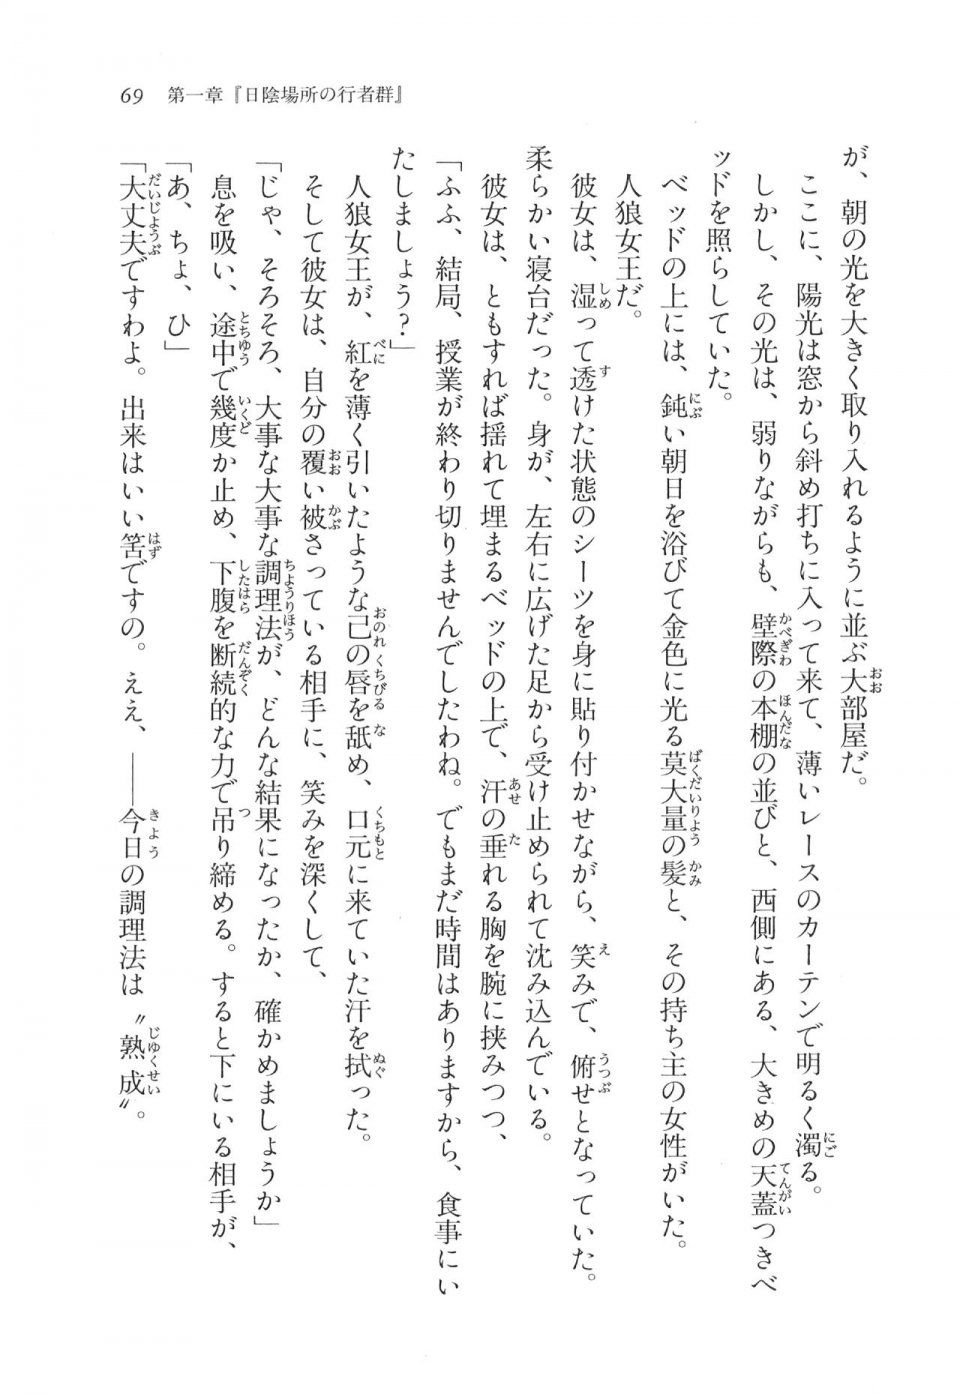 69　第一章『日陰場所の行者群』
が、朝の光を大きく取り入れるように並ぶ大部屋だ。
ここに、陽光は窓から斜め打ちに入って来て、薄いレースのカーテンで明るく濁る。
しかし、その光は、弱りながらも、壁際の本棚の並びと、西側にある、大きめの天蓋つきベ
ッドを照らしていた。
ベッドの上には、鈍い朝日を浴びて金色に光る莫大量の髪と、その持ち主の女性がいた。
人狼女王だ。
彼女は、湿って透けた状態のシーツを身に貼り付かせながら、笑みで、俯せとなっていた。
柔らかい寝台だった。身が、左右に広げた足から受け止められて沈み込んでいる。
彼女は、ともすれば揺れて埋まるベッドの上で、汗の垂れる胸を腕に挟みつつ、
「ふふ、結局、授業が終わり切りませんでしたわね。でもまだ時間はありますから、食事にい
たしましょう？」
人狼女王が、紅を薄く引いたような己の唇を舐め、口元に来ていた汗を拭った。
そして彼女は、自分の覆い被さっている相手に、笑みを深くして、
「じゃ、そろそろ、大事な大事な調理法が、どんな結果になったか、確かめましょうか」
息を吸い、途中で幾度か止め、下腹を断続的な力で吊り締める。すると下にいる相手が、
「あ、ちょ、ひ」
「大丈夫ですわよ。出来はいい筈ですの。ええ、――今日の調理法は〝熟成〟。